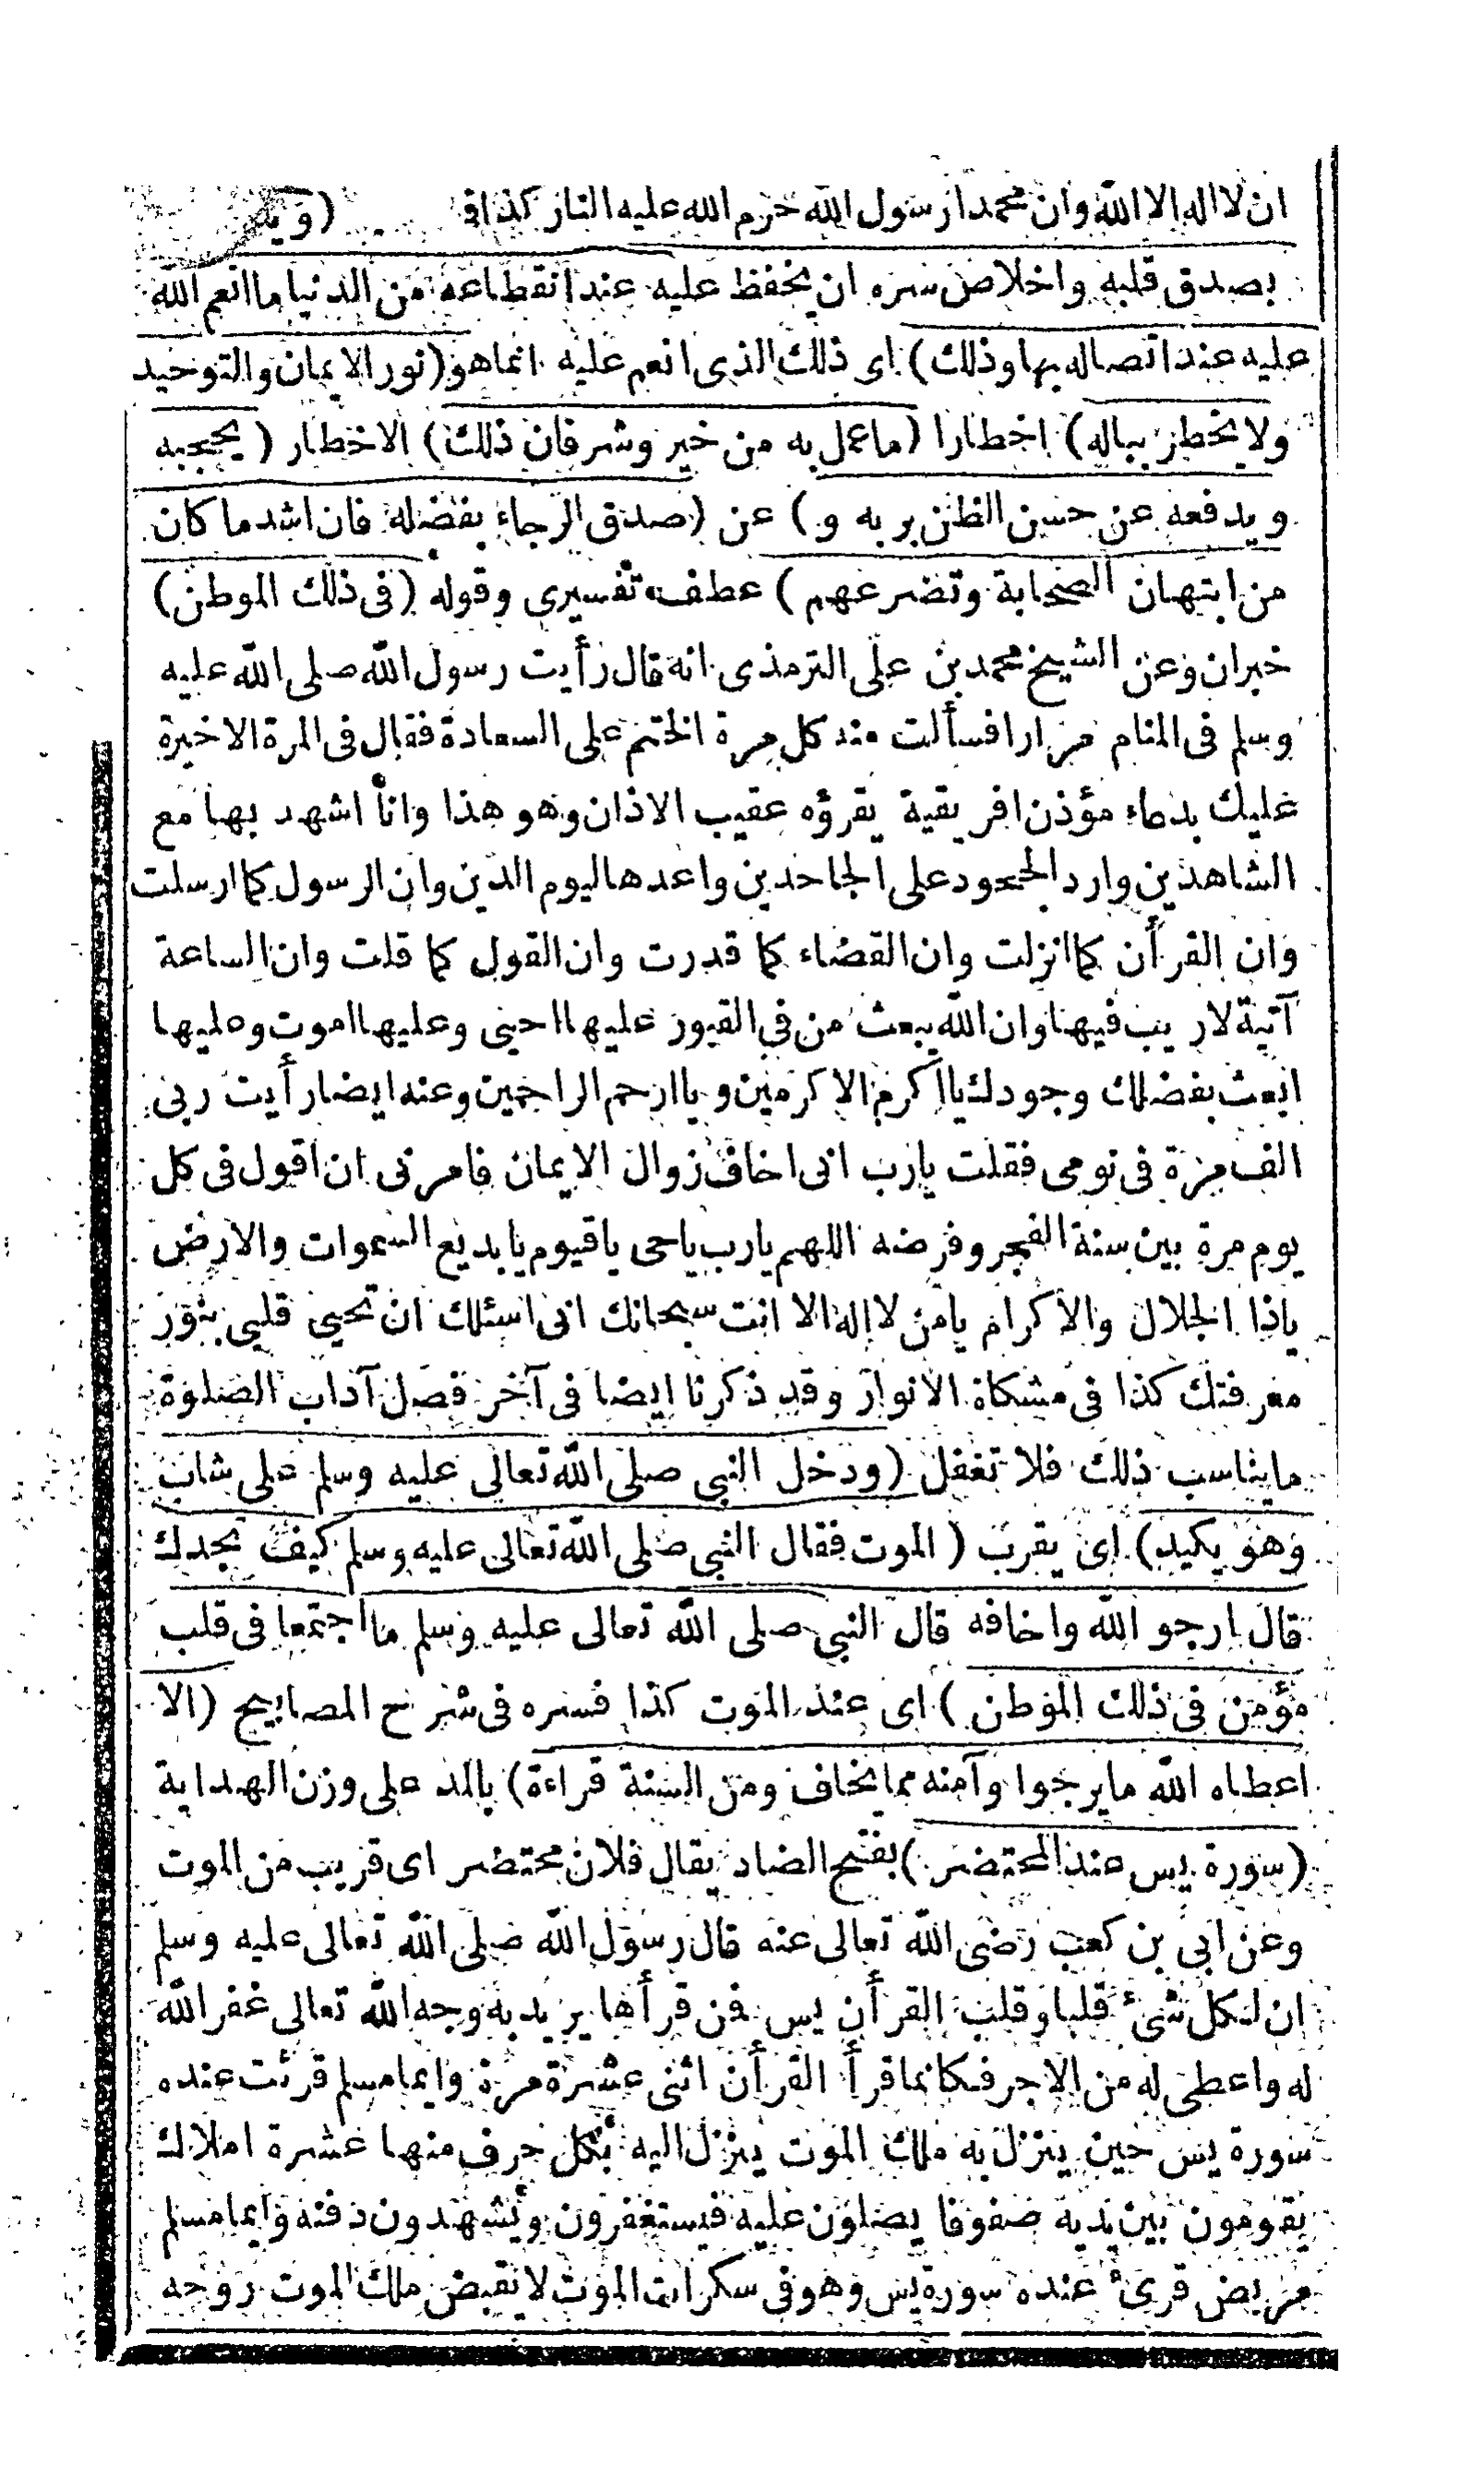 ان لا اله الا الله وان محمدا رسول الله حرم الله عليه النار كذا فى
بصدق قلبه واخلاص سره ان يحفظ عليه عند انقطاعه من الدنيا ما انعم الله
عليه عند اتصاله بها وذلك) اى ذلك الذى انعم عليه انما هو (نور الايمان والتوحيد
ولا يخطر بباله) اخطارا (ما عمل به من خير وشر فان ذلك) الاخطار (يحجبه
ويدفعه عن حسن الظن بربه و) عن (صدق الرجاء بفضله فان اشد ما كان
من ابتهان الصحابة وتضرعهم) عطف تفسيرى وقوله (فى ذلك الموطن)
خبران وعن الشيخ محمد بن على الترمذى انه قال رأيت رسول الله صلى الله عليه
وسلم فى المنام مرارا فسألت منه كل مرة الختم على السعادة فقال فى المرة الاخيرة
عليك بدعاء مؤذن افريقية يقرؤه عقيب الاذان وهو هذا وانا اشهد بها مع
الشاهدين وارد الجحود على الجاحدين واعدها ليوم الدين وان الرسول كما ارسلت
وان القرأن كما انزلت وان القضاء كما قدرت وان القول كما قلت وان الساعة
آتية لا ريب فيها وان الله يبعث من فى القبور عليها احيى وعليها اموت وعليها
ابعث بفضلك وجودك يا اكرم الاكرمين ويا ارحم الراحمين وعنه ايضا رأيت ربى
الف مرة فى نومى فقلت يارب انى اخاف زوال الايمان فامرنى ان اقول فى كل
يوم مرة بين سنة الفجر وفرضه اللهم يارب ياحى ياقيوم يابديع السموات والارض
ياذا الجلال والاكرام يامن لا اله الا انت سبحانك انى اسئلك ان تحيى قلبى بنور
معرفتك كذا فى مشكاة الانوار وقد ذكرنا ايضا فى آخر فصل آداب الصلوة
مايناسب ذلك فلا تغفل (ودخل النبى صلى الله تعالى عليه وسلم على شاب
وهو يكيد) اى يقرب (الموت فقال النبى صلى الله تعالى عليه وسلم كيف تجدك
قال ارجو الله واخافه قال النبى صلى الله تعالى عليه وسلم ما اجتمعا فى قلب
مؤمن فى ذلك الموطن) اى عند الموت كذا فسره فى شرح المصابيح (الا
اعطاه الله مايرجوا وآمنه مما يخاف ومن السنة قراءة) بالمد على وزن الهداية
(سورة يس عند المحتضر) بفتح الضاد يقال فلان محتضر اى قريب من الموت
وعن ابى بن كعب رضى الله تعالى عنه قال رسول الله صلى الله تعالى عليه وسلم
ان لكل شئ قلبا وقلب القرأن يس فمن قرأها يريد به وجه الله تعالى غفر الله
له واعطى له من الاجر فكانما قرأ القرأن اثنى عشرة مرة وايما مسلم قرئت عنده
سورة يس حين ينزل به ملك الموت ينزل اليه بكل حرف منها عشرة املاك
يقومون بين يديه صفوفا يصلون عليه فيستغفرون ويشهدون دفنه وايما مسلم
مريض قرئ عنده سورة يس وهو فى سكرات الموت لا يقبض ملك الموت روحه